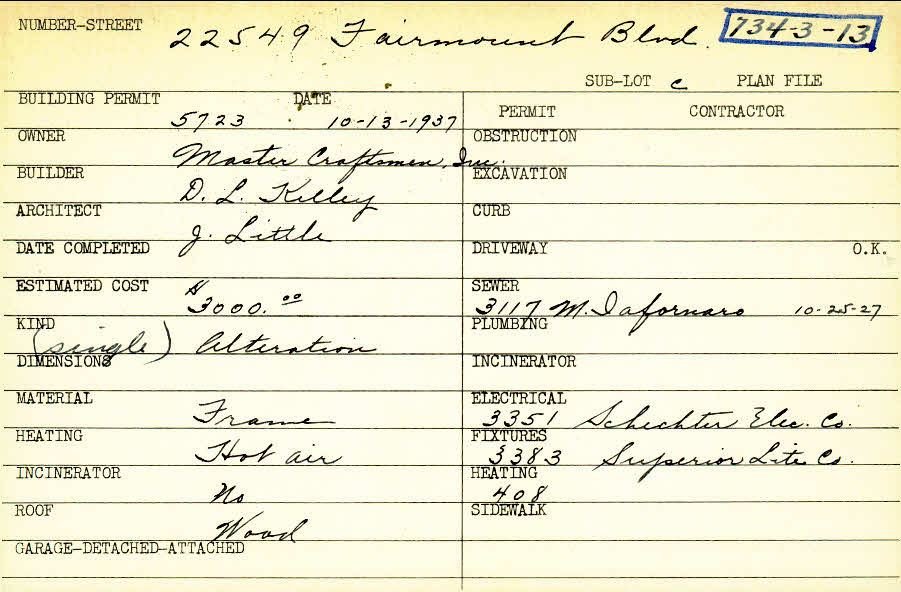 NUMBER-STREET 22549 Fairmount Blvd. 734-3-13
SUB-LOT C PLAN FILE
BUILDING PERMIT DATE
5723 10-13-1937
PERMIT CONTRACTOR
OWNER
Master Craftsmen, Inc.
BUILDER
D. L. Killey
ARCHITECT
J. Little
DATE COMPLETED
ESTIMATED COST
$3000.00
KIND
(single) Alteration
DIMENSIONS
MATERIAL
Frame
HEATING
Hot air
INCINERATOR
No
ROOF
Wood
GARAGE-DETACHED-ATTACHED
OBSTRUCTION
EXCAVATION
CURB
DRIVEWAY O.K.
SEWER
3117 M. Iafornaro 10-25-27
PLUMBING
INCINERATOR
ELECTRICAL
3351 Schechter Elec. Co.
FIXTURES
3383 Superior Lite Co.
HEATING
408
SIDEWALK